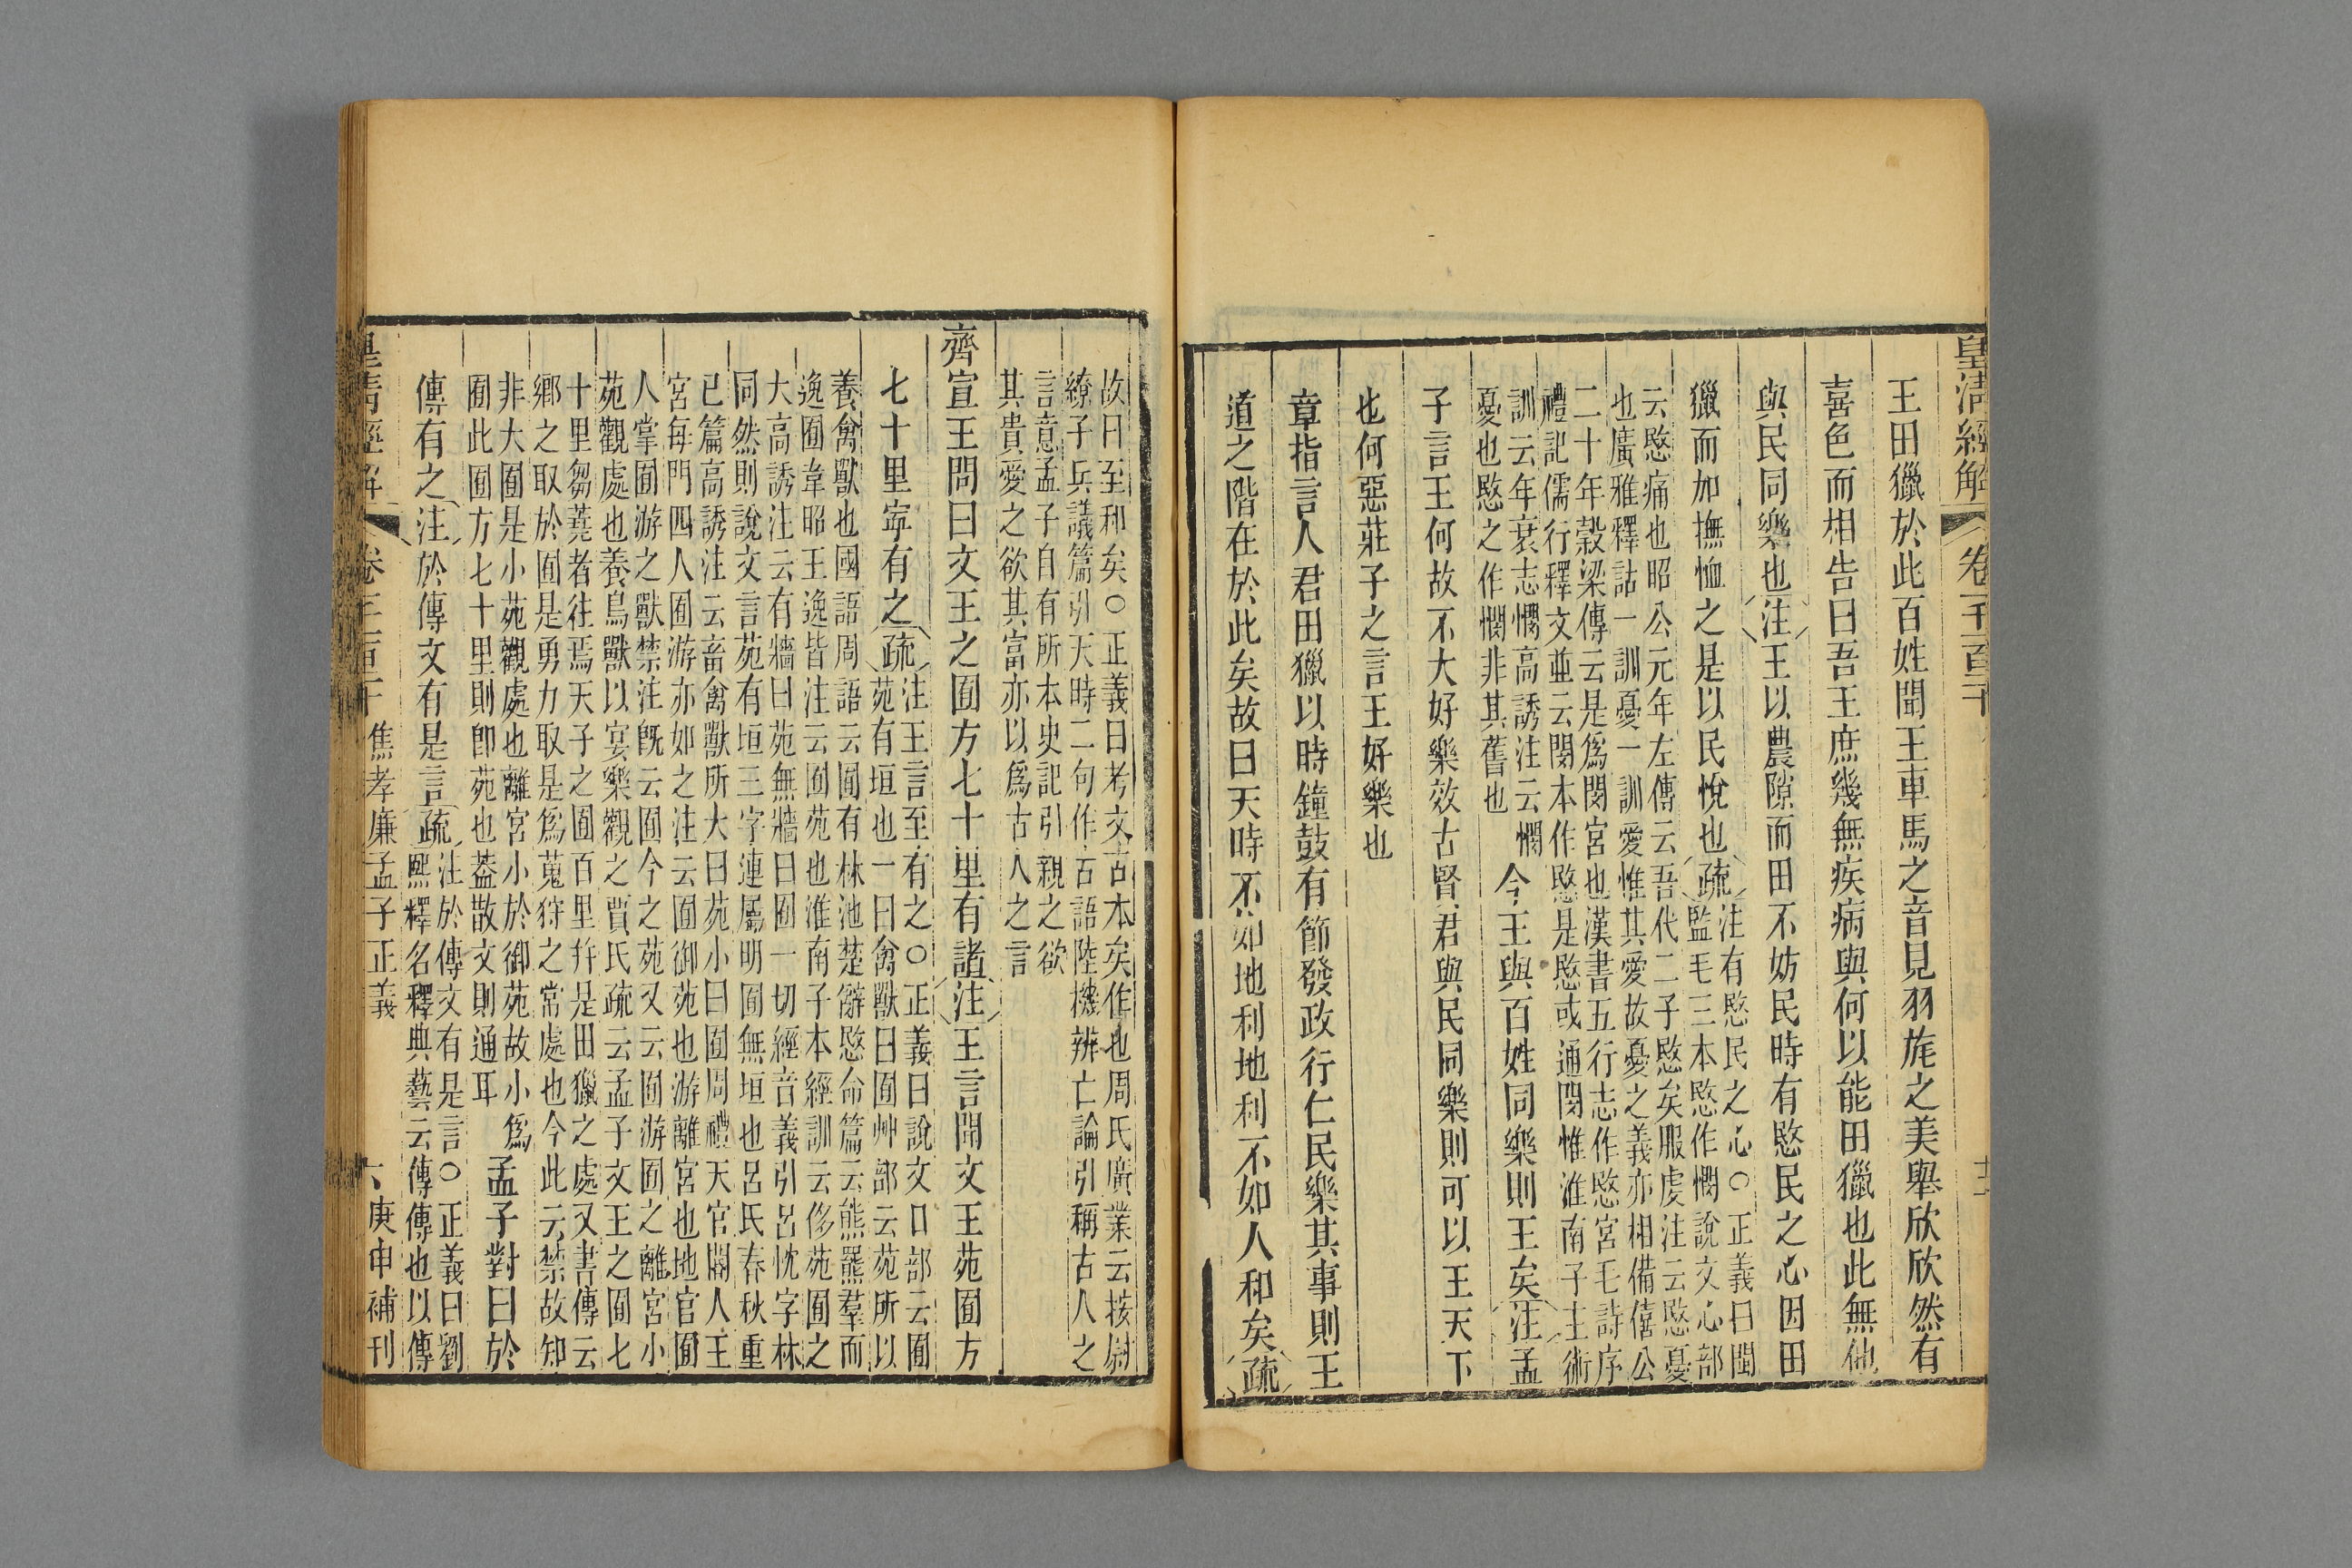 皇清經解
卷一千一百二十
王田獵於此百姓聞王車馬之音見羽旄之美舉欣欣然有
喜色而相告曰吾王庶幾無疾病與何以能田獵也此無他
與民同樂也注王以農隙而田不妨民時有愍民之心因田
獵而加撫恤之是以民悅也疏
注有愍民之心○正義曰閩
監毛三本愍作憫說文心部
云愍痛也昭公元年左傳云吾代二子愍矣服虔注云愍憂
也廣雅釋詁一訓憂一訓愛惟其愛故憂之義亦相備僖公
二十年穀梁傳云是爲閔宮也漢書五行志作愍宮毛詩序
禮記儒行釋文並云閔本作愍是愍或通閔惟淮南子主術
訓云年衰志憫高誘注云憫
憂也愍之作憫非其舊也
今王與百姓同樂則王矣注孟
子言王何故不大好樂效古賢君與民同樂則可以王天下
也何惡莊子之言王好樂也
章指言人君田獵以時鐘鼓有節發政行仁民樂其事則王
道之階在於此矣故曰天時不如地利地利不如人和矣疏
故曰至和矣○正義曰考文古本矣作也周氏廣業云按尉
繚子兵議篇引天時二句作古語陸機辨亡論引稱古人之
言意孟子自有所本史記引親之欲
其貴愛之欲其富亦以爲古人之言
齊宣王問曰文王之囿方七十里有諸注王言聞文王苑囿方
七十里寧有之疏
注王言至有之○正義曰說文口部云囿
苑有垣也一曰禽獸曰囿艸部云苑所以
養禽獸也國語周語云囿有林池楚辭愍命篇云熊羆羣而
逸囿韋昭王逸皆注云囿苑也淮南子本經訓云侈苑囿之
大高誘注云有牆曰苑無牆曰囿一切經音義引呂忱字林
同然則說文言苑有垣三字連屬明囿無垣也呂氏春秋重
已篇高誘注云畜禽獸所大曰苑小曰囿周禮天官閽人王
宮每門四人囿游亦如之注云囿御苑也游離宮也地官囿
人掌囿游之獸禁注旣云囿今之苑又云囿游囿之離宮小
苑觀處也養鳥獸以宴樂觀之賈氏疏云孟子文王之囿七
十里芻蕘者往焉天子之囿百里幷是田獵之處又書傳云
鄉之取於囿是勇力取是爲蒐狩之常處也今此云禁故知
非大囿是小苑觀處也離宮小於御苑故小爲
囿此囿方七十里則卽苑也葢散文則通耳
孟子對曰於
傳有之注於傳文有是言疏
注於傳文有是言○正義曰劉
熙釋名釋典藝云傳傳也以傳
皇清經解
卷一千一百二十
焦孝廉孟子正義
庚申補刊